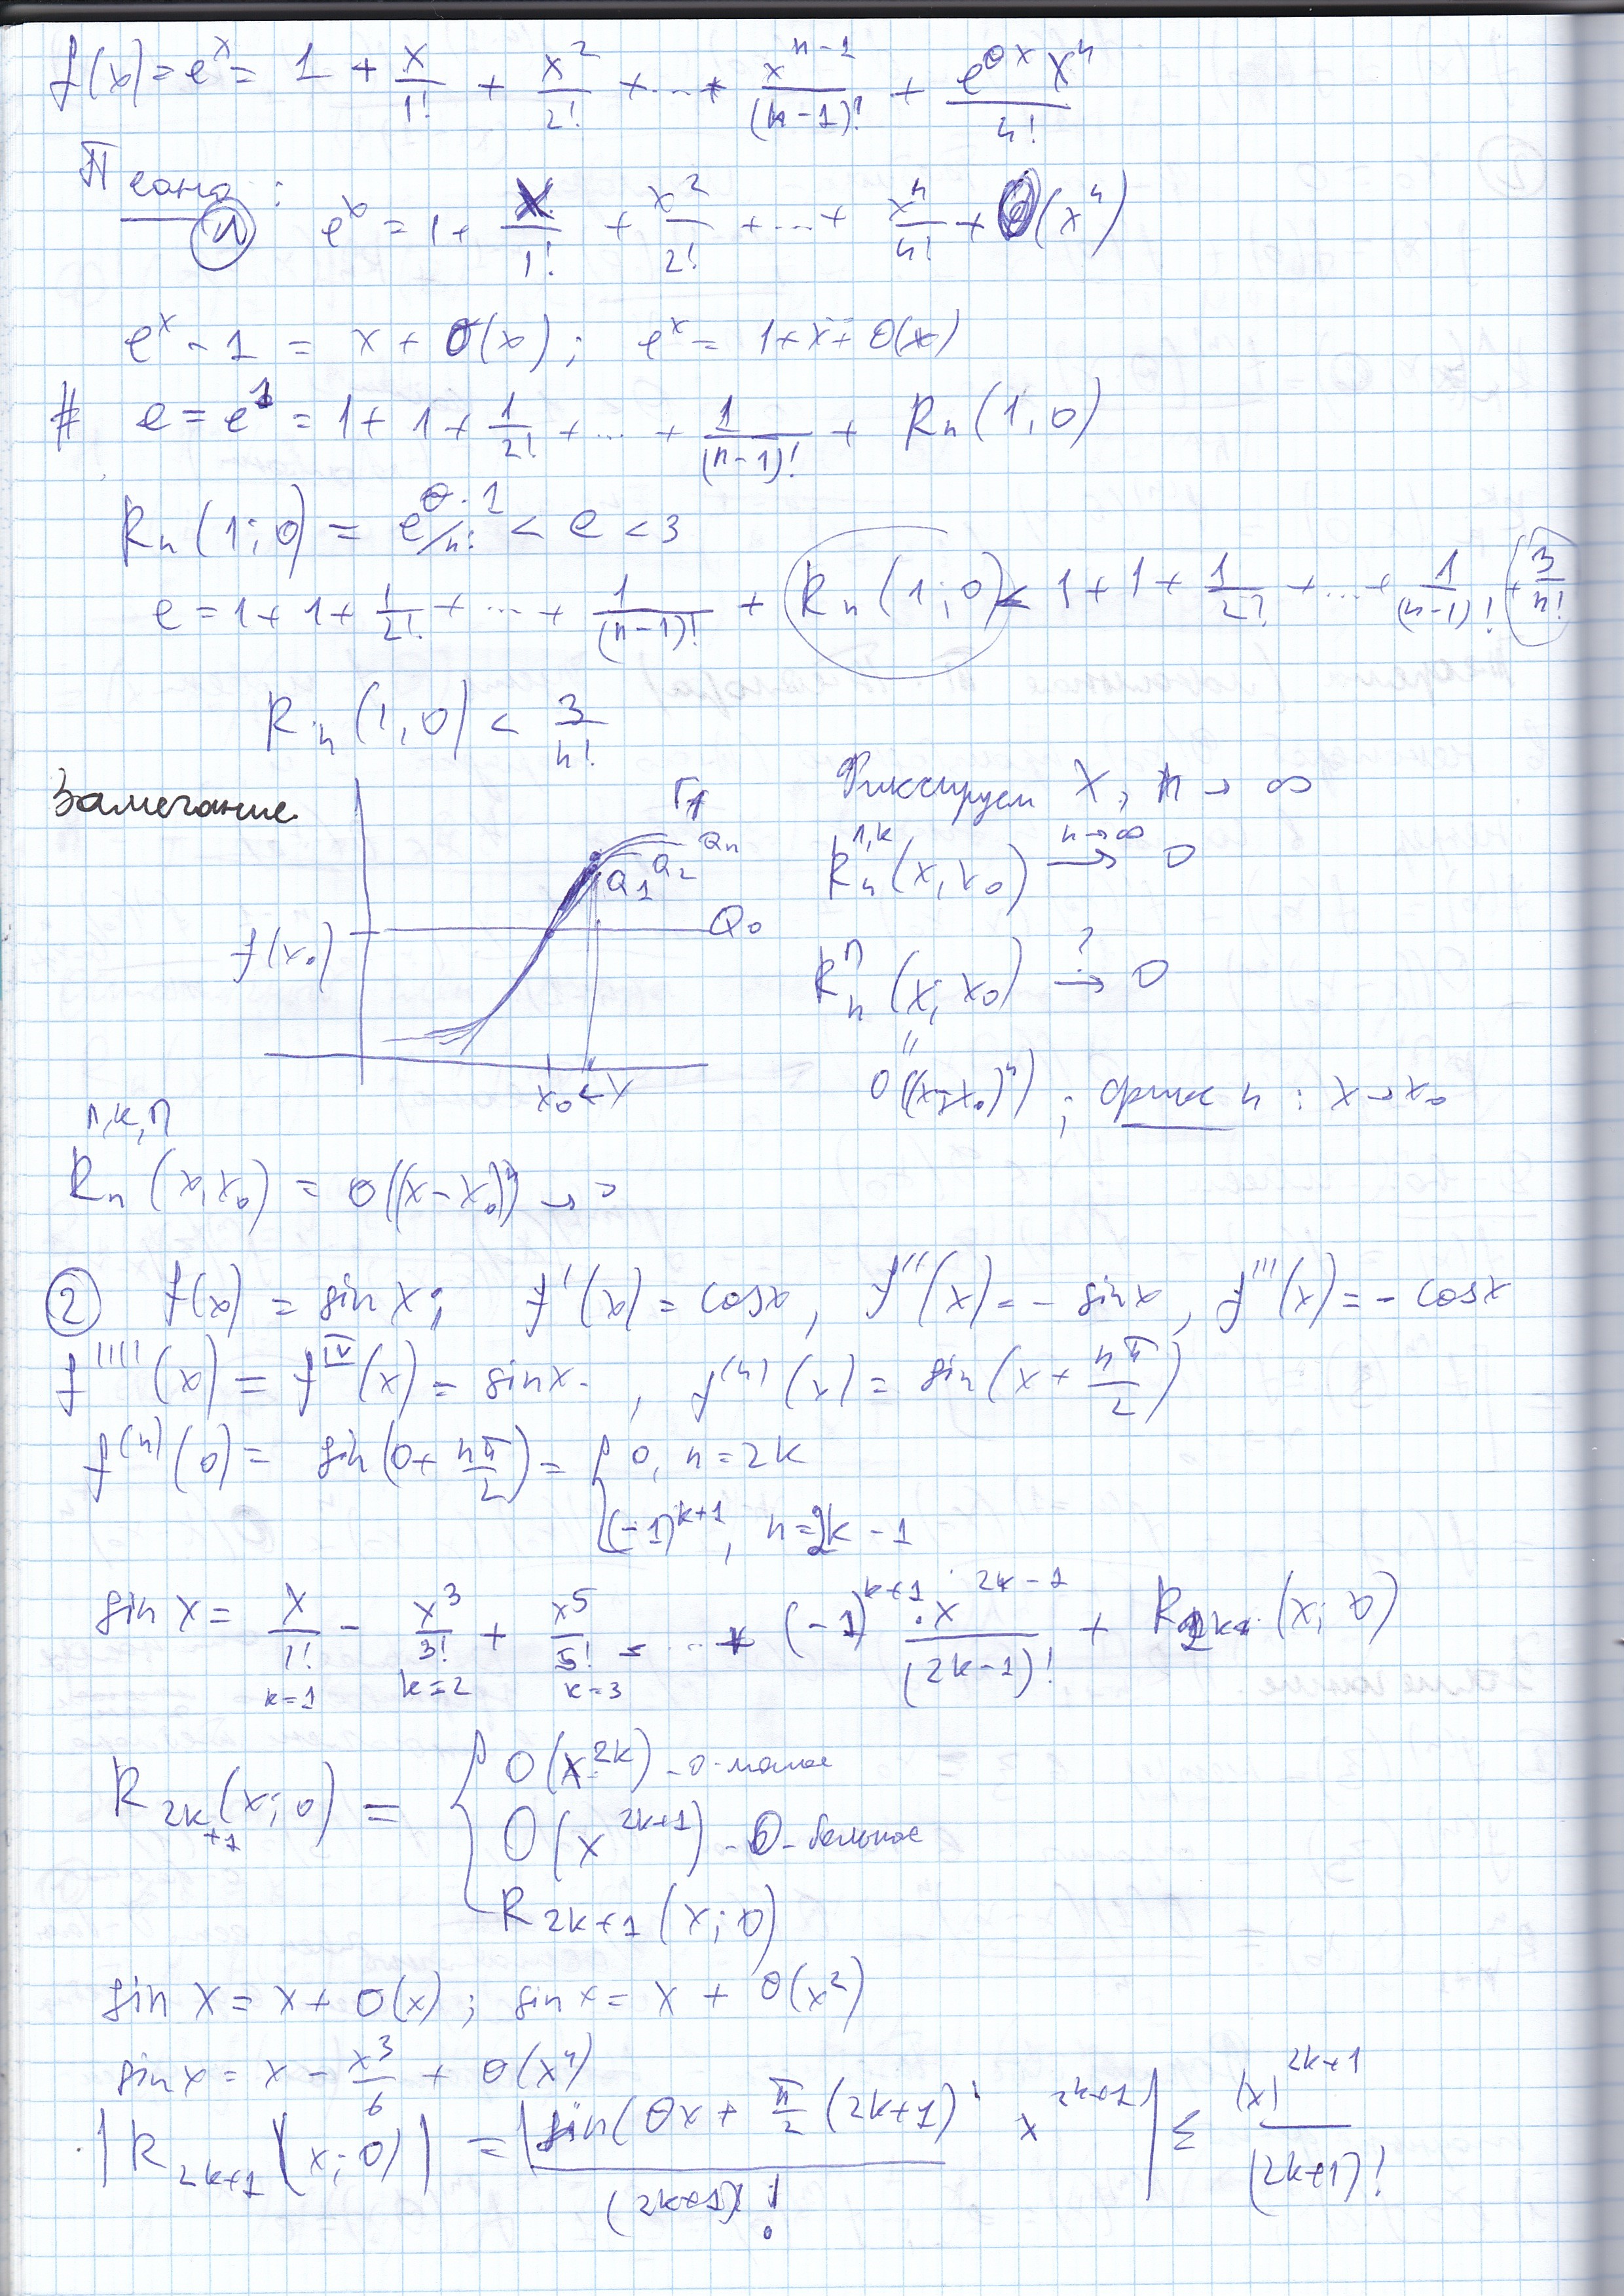 f(x) = e^x = 1 + x/1! + x^2/2! + ... + x^{n-1}/(n-1)! + e^{θx} x^n/n!
Пеано :
(П) e^x = 1 + x/1! + x^2/2! + ... + x^n/n! + o(x^n)
e^x - 1 = x + o(x); e^x = 1 + x + o(x)
# e = e^1 = 1 + 1 + 1/2! + ... + 1/(n-1)! + R_n(1,0)
R_n(1;0) = e^{θ·1}/n! < e < 3
e = 1 + 1 + 1/2! + ... + 1/(n-1)! + R_n(1;0) < 1 + 1 + 1/2! + ... + 1/(n-1)! + 3/n!
R_n(1,0) < 3/n!
Замечание
Фиксируем x, n → ∞
R_n^{Л,К}(x,x_0) →^{n→∞} 0
Q_n
Q_1 Q_2
Q_0
f(x_0)
R_n^П(x; x_0) →^? 0
=
o((x-x_0)^n) ; фикс n : x→x_0
x_0 ← x
Л,К,П
R_n(x,x_0) = o((x-x_0)^n) →
② f(x) = sin x; f'(x) = cos x, f''(x) = - sin x, f'''(x) = - cos x
f''''(x) = f^{IV}(x) = sin x. , f^{(n)}(x) = sin(x + nπ/2)
f^{(n)}(0) = sin(0 + nπ/2) = { 0, n = 2k
(-1)^{k+1}, n = 2k - 1
sin x = x/1! - x^3/3! + x^5/5! - ... + (-1)^{k+1} · x^{2k-1}/(2k-1)! + R_{2k+1}(x; 0)
k=1 k=2 k=3
R_{2k+1}(x; 0) = { o(x^{2k}) - о-малое
O(x^{2k+1}) - О-большое
R_{2k+1}(x; 0)
sin x = x + o(x); sin x = x + o(x^2)
sin x = x - x^3/6 + o(x^4)
|R_{2k+1}(x; 0)| = |sin(θx + π/2 (2k+1)) · x^{2k+1}/(2k+1)!| ≤ (x)^{2k+1}/(2k+1)!